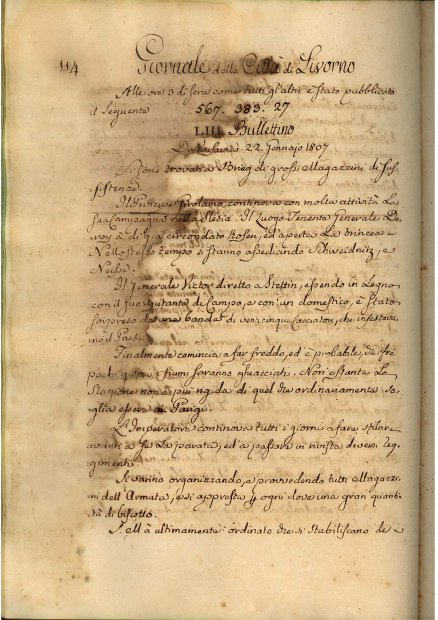 114 Giornale della Città di Livorno
Alle ore 3 di sera come tutti gl'altri è stato pubblicato
il Seguente 567. 383. 27
LIII Bullettino
Di Varsavia 22. Gennajo 1807
Si sono trovati a Brieg di grossi Magazzini di Sus-
sistenza.
Il Principe Girolamo continova con molta attività La
sua campagna nella Slesia. Il Luogo Tenente Generale De-
roy à di già circondato Kosen, ed aperta La trincea –
Nello stesso tempo si stanno assediando Schweidnitz, e
Neisse.
Il Generale Victor diretto a Stettin, essendo in Legno
con il suo Ajutante di Campo, e con un domestico, è stato
sorpreso da una banda di venticinque Cacciatori, che infestava-
no il Paese.
Finalmente comincia a far freddo, ed è probabile, che fra
pochi giorni i fiumi saranno ghiacciati. Non ostante La
Stagione non è più rigida di quel che ordinariamente so-
glia essere a Parigi.
L'Imperatore continova tutti i giorni a fare sfilare
avanti a Se La parata, ed a passare in rivista diversi Reg-
gimenti.
Si vanno organizzando, e provvedendo tutti i Magazzi-
ni dell'Armata, e si appresta p ogni dove una gran quanti-
tà di biscotto.
S. M. à ultimamente ordinato che si stabiliscano de